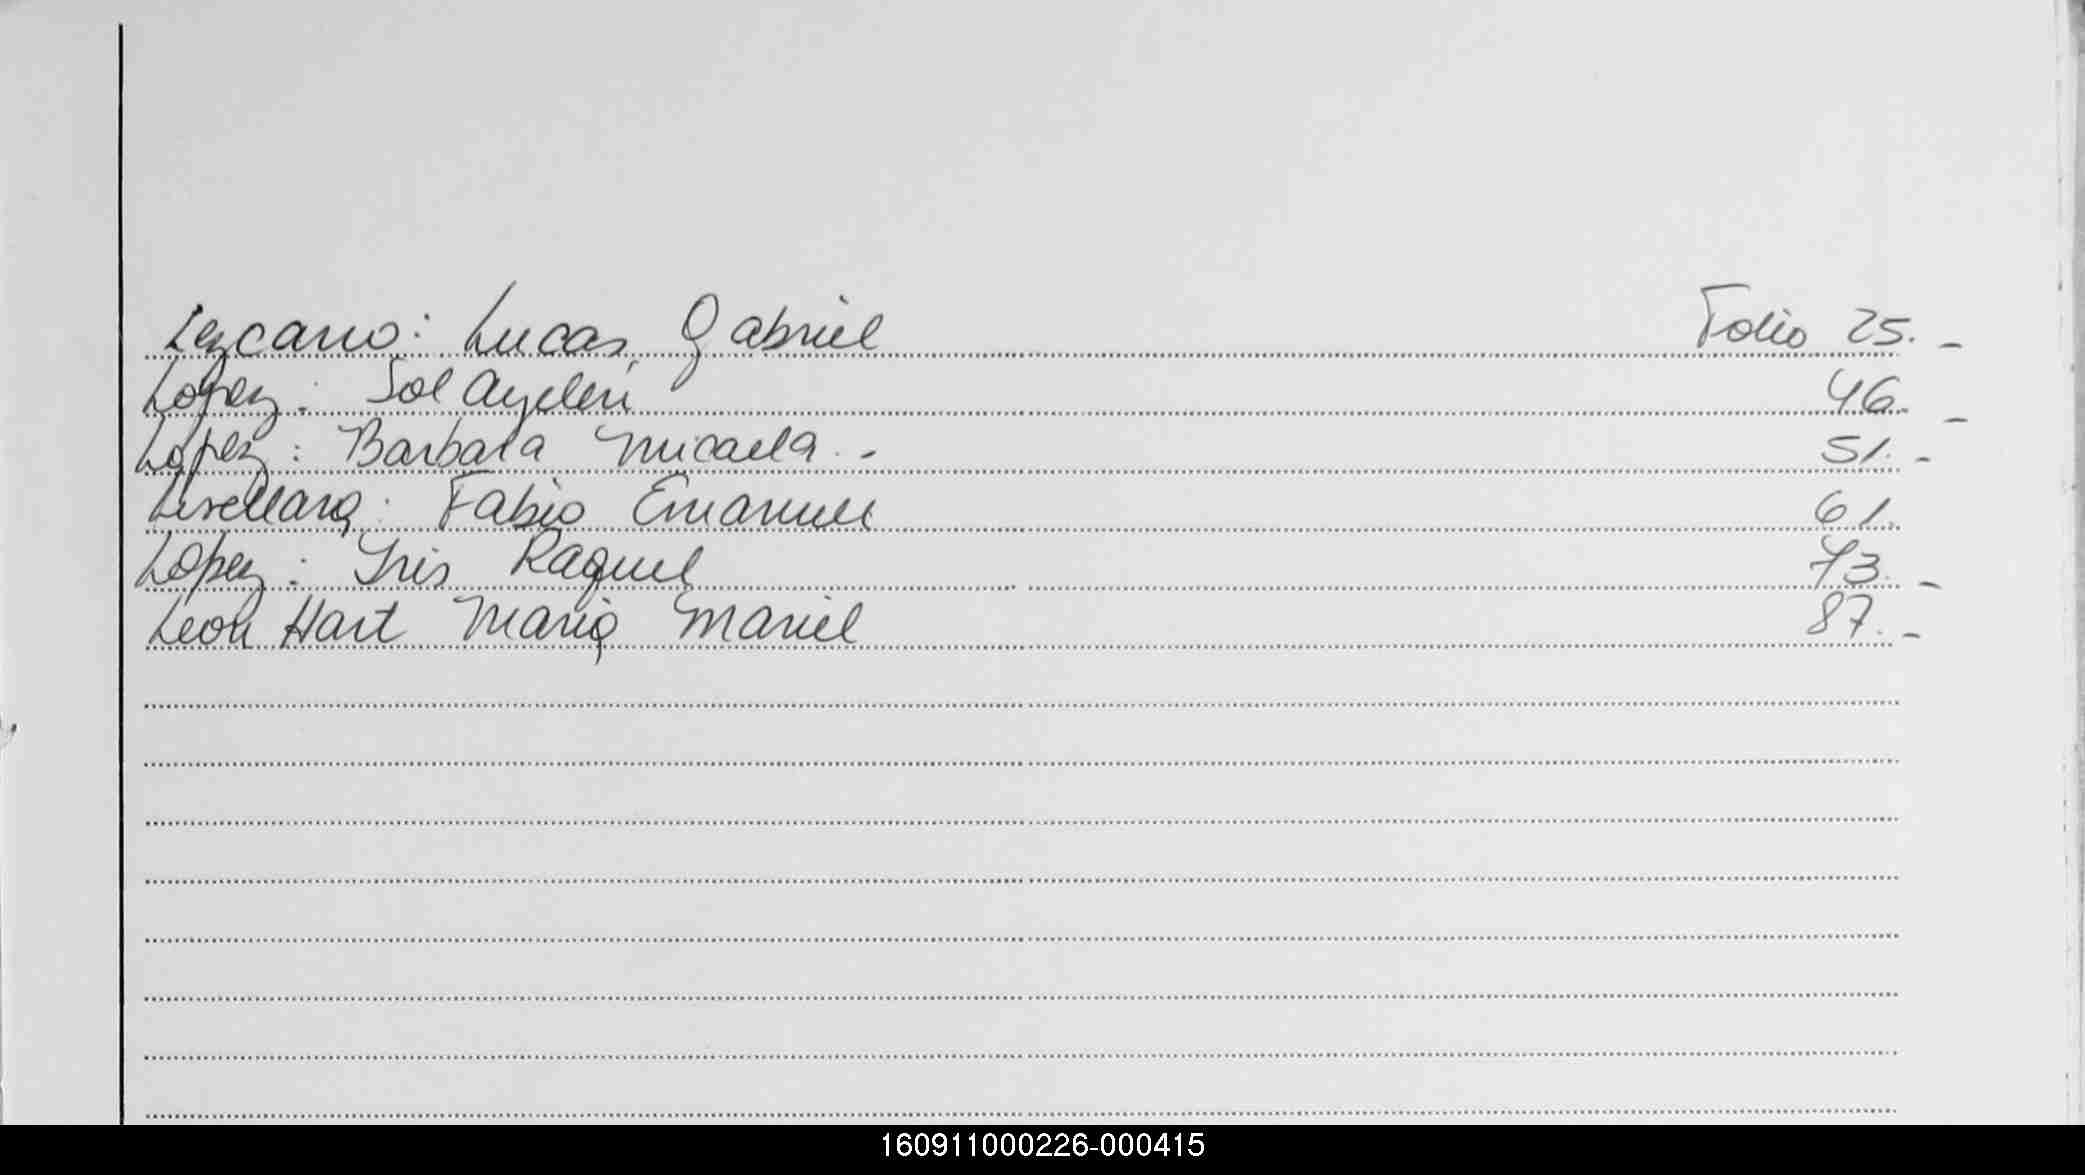 Lezcano: Lucas Gabriel Folio 25.-
Lopez: Sol Ayelen 46.-
Lopez: Barbara Micaela.- 51.-
Fabio Emanuel 61.
Lopez: Iris Raquel 73.-
Leon Hart Maria Mariel 87.-
160911000226-000415